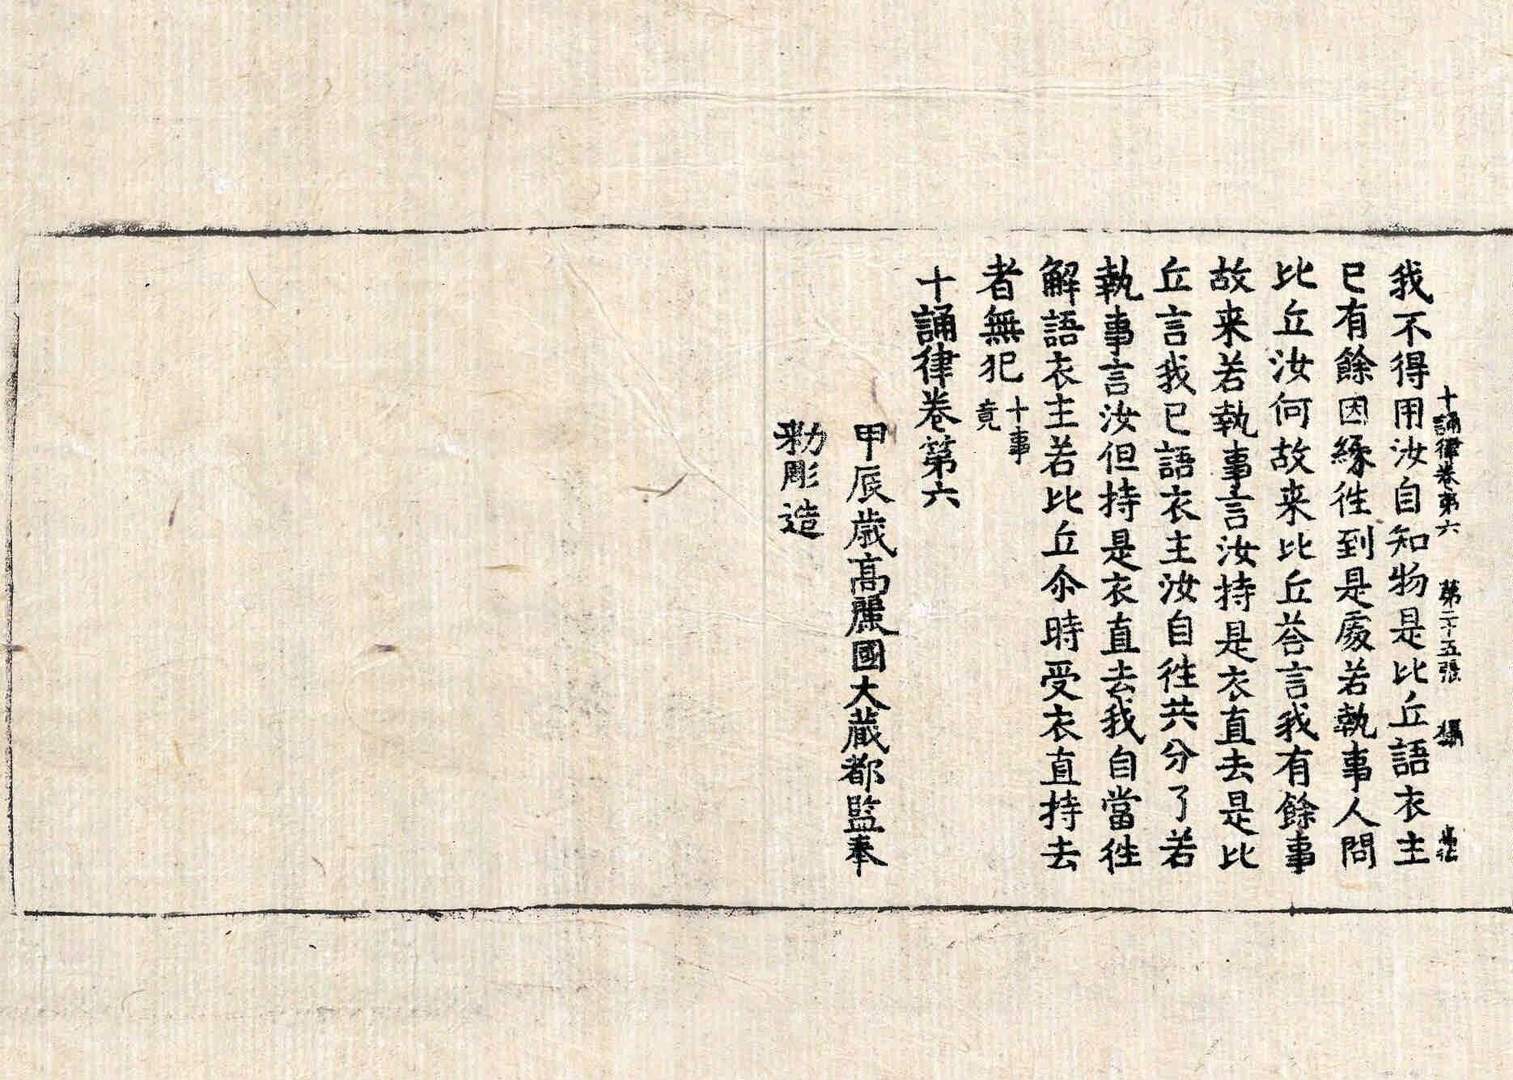 十誦律卷第六 第二十五張 攝
我不得用汝自知物是比丘語衣主
已有餘因緣徃到是處若執事人問
比丘汝何故来比丘荅言我有餘事
故来若執事言汝持是衣直去是比
丘言我已語衣主汝自徃共分了若
執事言汝但持是衣直去我自當徃
解語衣主若比丘尒時受衣直持去
者無犯十事竟
十誦律卷第六
甲辰歳高麗國大藏都監奉
勑彫造